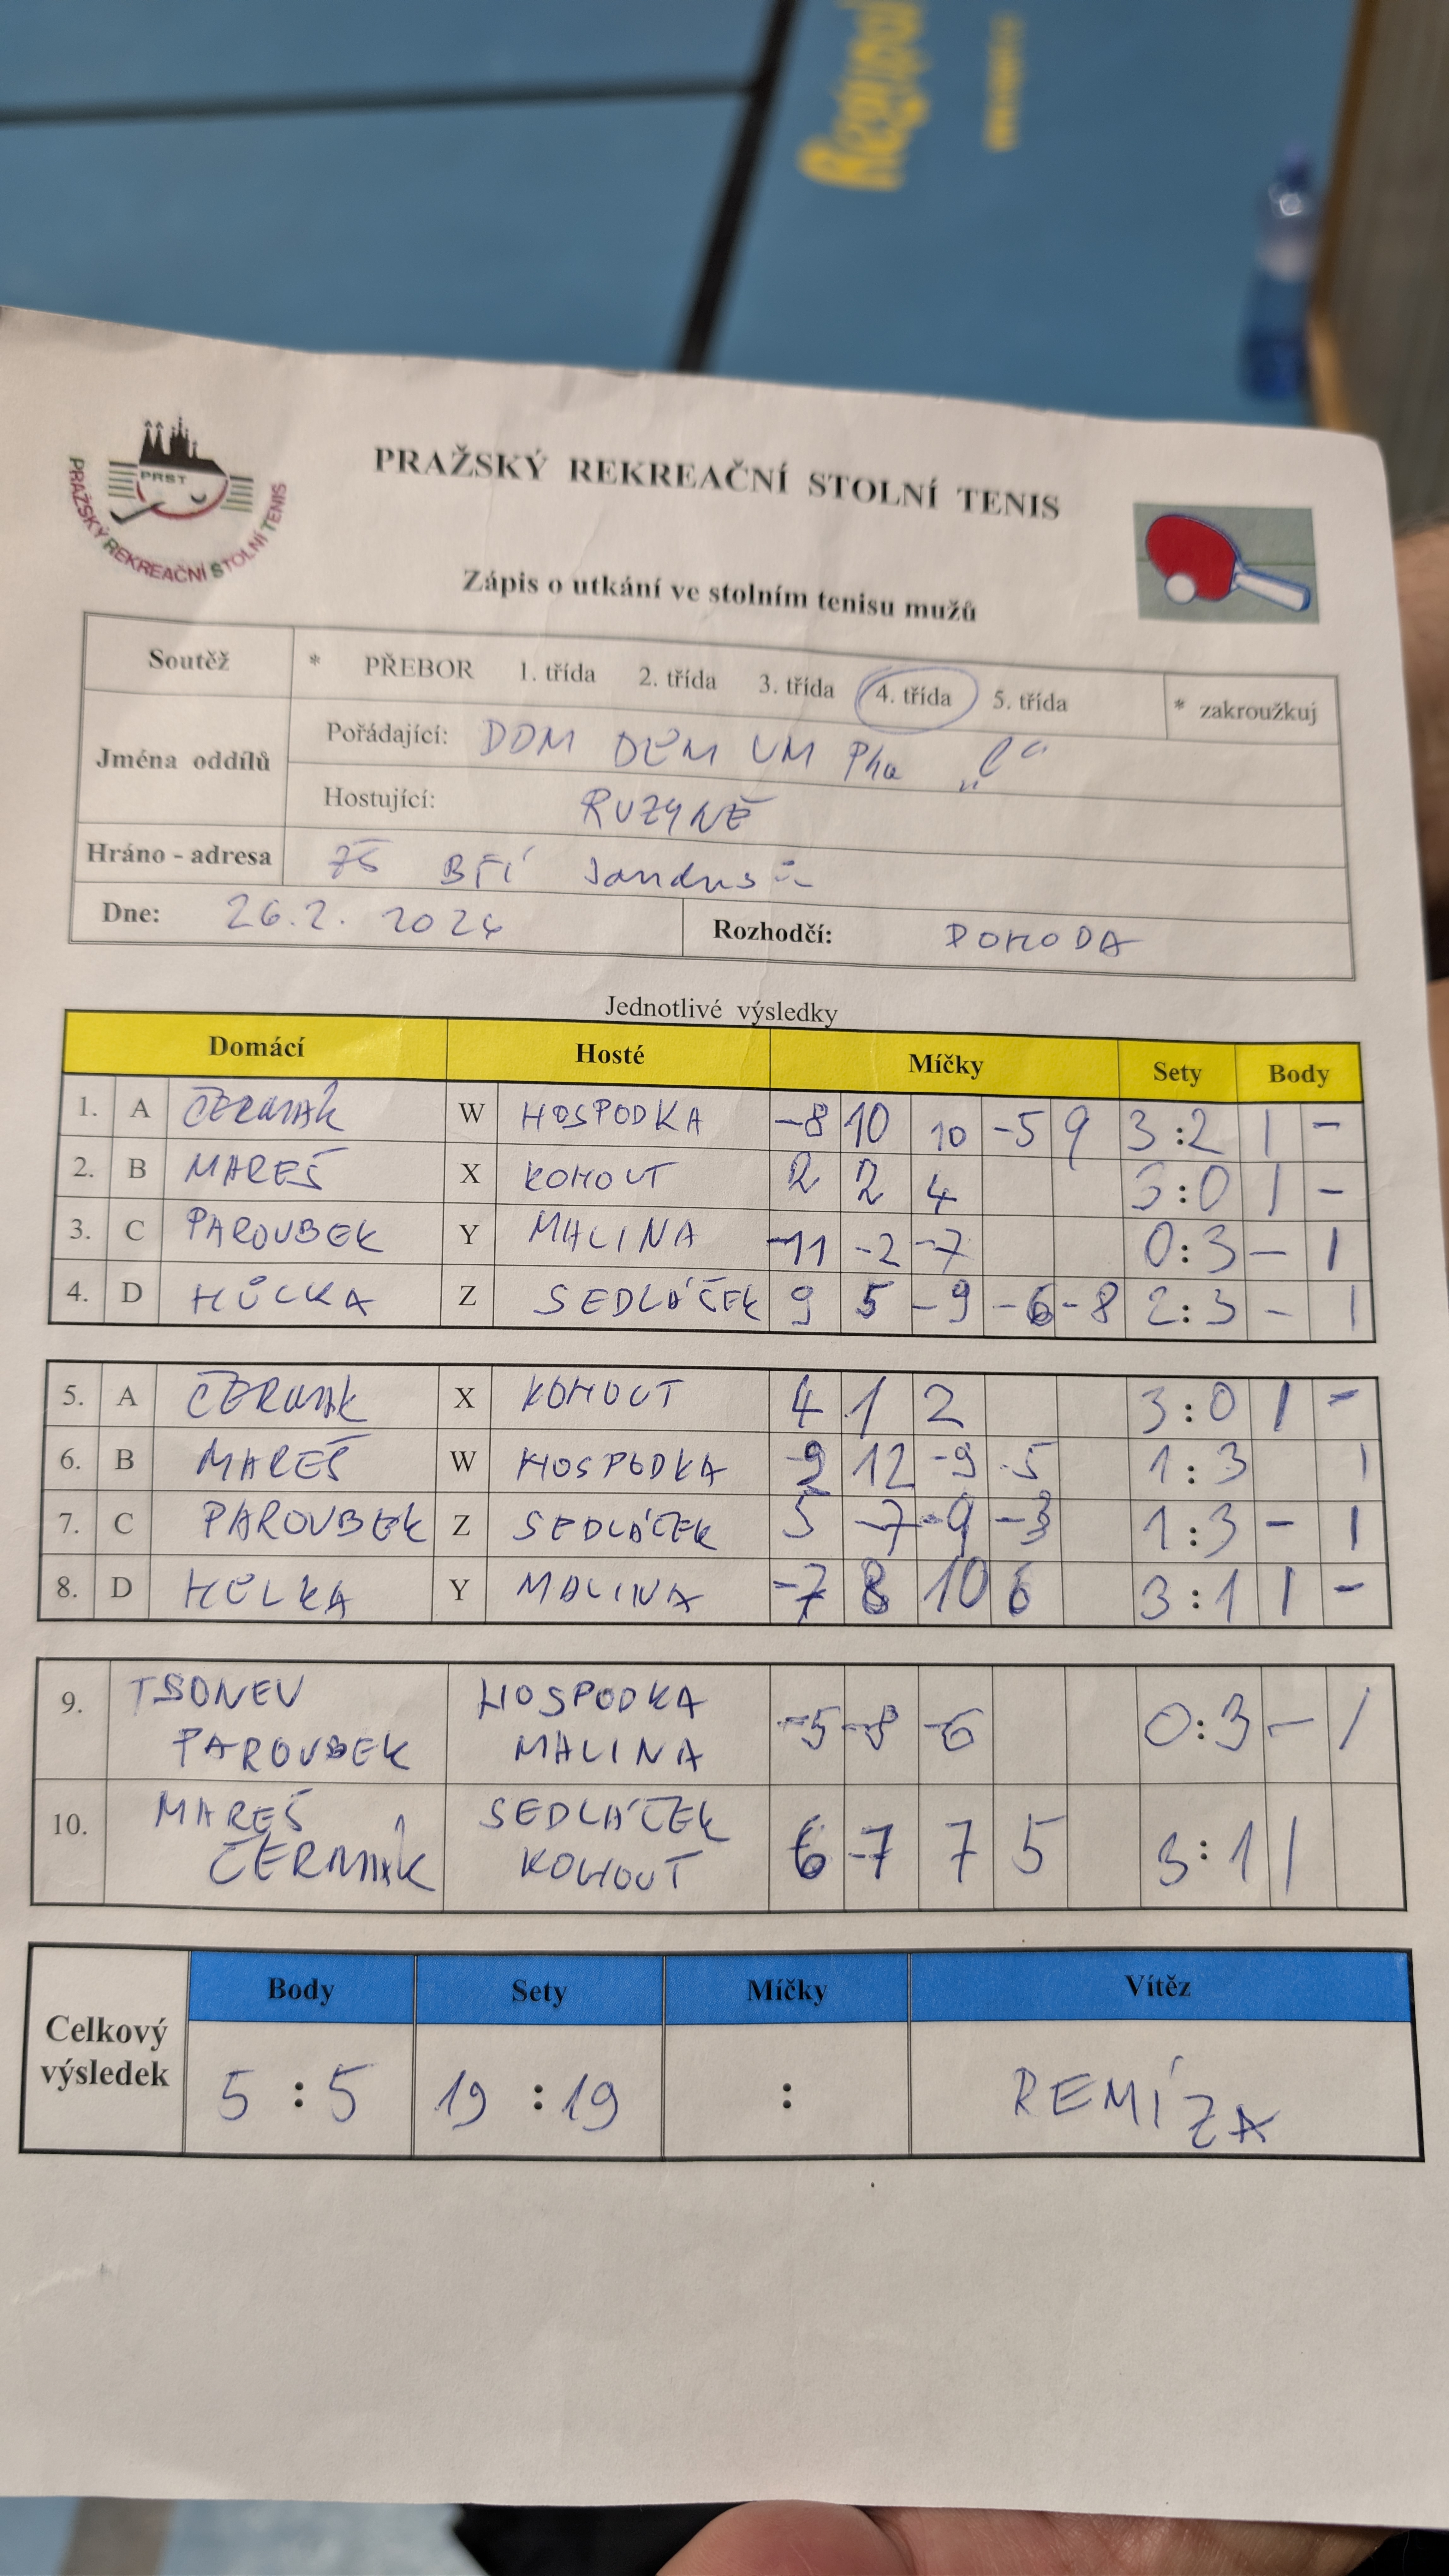 PRST
PRAŽSKÝ REKREAČNÍ STOLNÍ TENIS
PRAŽSKÝ REKREAČNÍ STOLNÍ TENIS
Zápis o utkání ve stolním tenisu mužů
Soutěž * PŘEBOR 1. třída 2. třída 3. třída 4. třída 5. třída * zakroužkuj
Jména oddílů
Pořádající: DDM DĚM UM Pha „C“
Hostující: RUZYNĚ
Hráno - adresa ZŠ BŘÍ Jandusů
Dne: 26.2. 2024 Rozhodčí: POHODA
Jednotlivé výsledky
Domácí Hosté Míčky Sety Body
1. A ČERMÁK W HOSPODKA -8 10 10 -5 9 3:2 1 -
2. B MAREŠ X KOHOUT 2 2 4 3:0 1 -
3. C PAROUBEK Y MALINA -11 -2 -7 0:3 - 1
4. D HŮLKA Z SEDLÁČEK 9 5 -9 -6 -8 2:3 - 1
5. A ČERMÁK X KOHOUT 4 1 2 3:0 1 -
6. B MAREŠ W HOSPODKA -9 12 -9 -5 1:3 1
7. C PAROUBEK Z SEDLÁČEK 5 -7 -9 -3 1:3 - 1
8. D HŮLKA Y MALINA -7 8 10 6 3:1 1 -
9. TSONEV HOSPODKA -5 -8 -6 0:3 - 1
PAROUBEK MALINA
10. MAREŠ SEDLÁČEK 6 -7 7 5 3:1 1
ČERMÁK KOHOUT
Celkový výsledek
Body Sety Míčky Vítěz
5 : 5 19 : 19 : REMÍZA